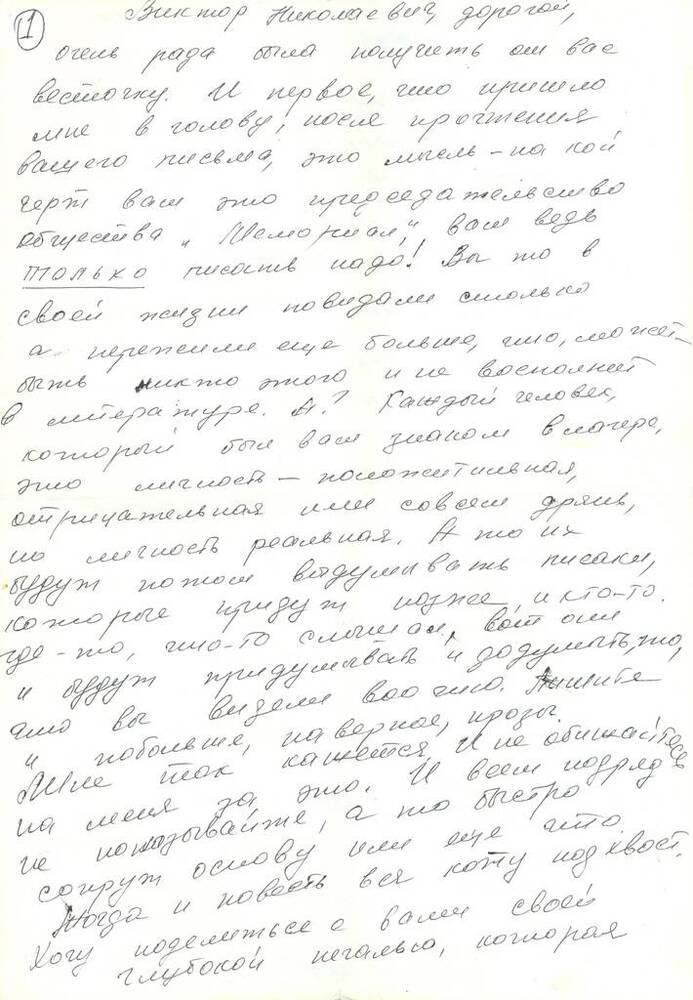 1
Виктор Николаевич, дорогой,
очень рада была получить от вас
весточку. И первое, что пришло
мне в голову, после прочтения
вашего письма, это мысль – на кой
черт вам это председательство
общества „Мемориал", вам ведь
только писать надо! Вы то в
своей жизни повидали столько
а пережили еще больше, что, может-
быть никто этого и не восполнит
в литературе. А? Каждый человек,
который был вам знаком в лагере,
это личность – положительная,
отрицательная или совсем дрянь,
но личность реальная. А то их
будут потом выдумывать писаки,
которые придут позже, и кто-то.
где-то, что-то слышал, вот они
и будут придумывать и додумыть, то,
что вы видели воочию. Пишите
и побольше, наверное, прозы.
Мне так кажется. И не обижайтесь
на меня за это. И всем подряд
не показывайте, а то быстро
сопрут основу или еще что.
Тогда и повесть вся коту под хвост.
Хочу поделиться с вами своей
глубокой печалью, которая